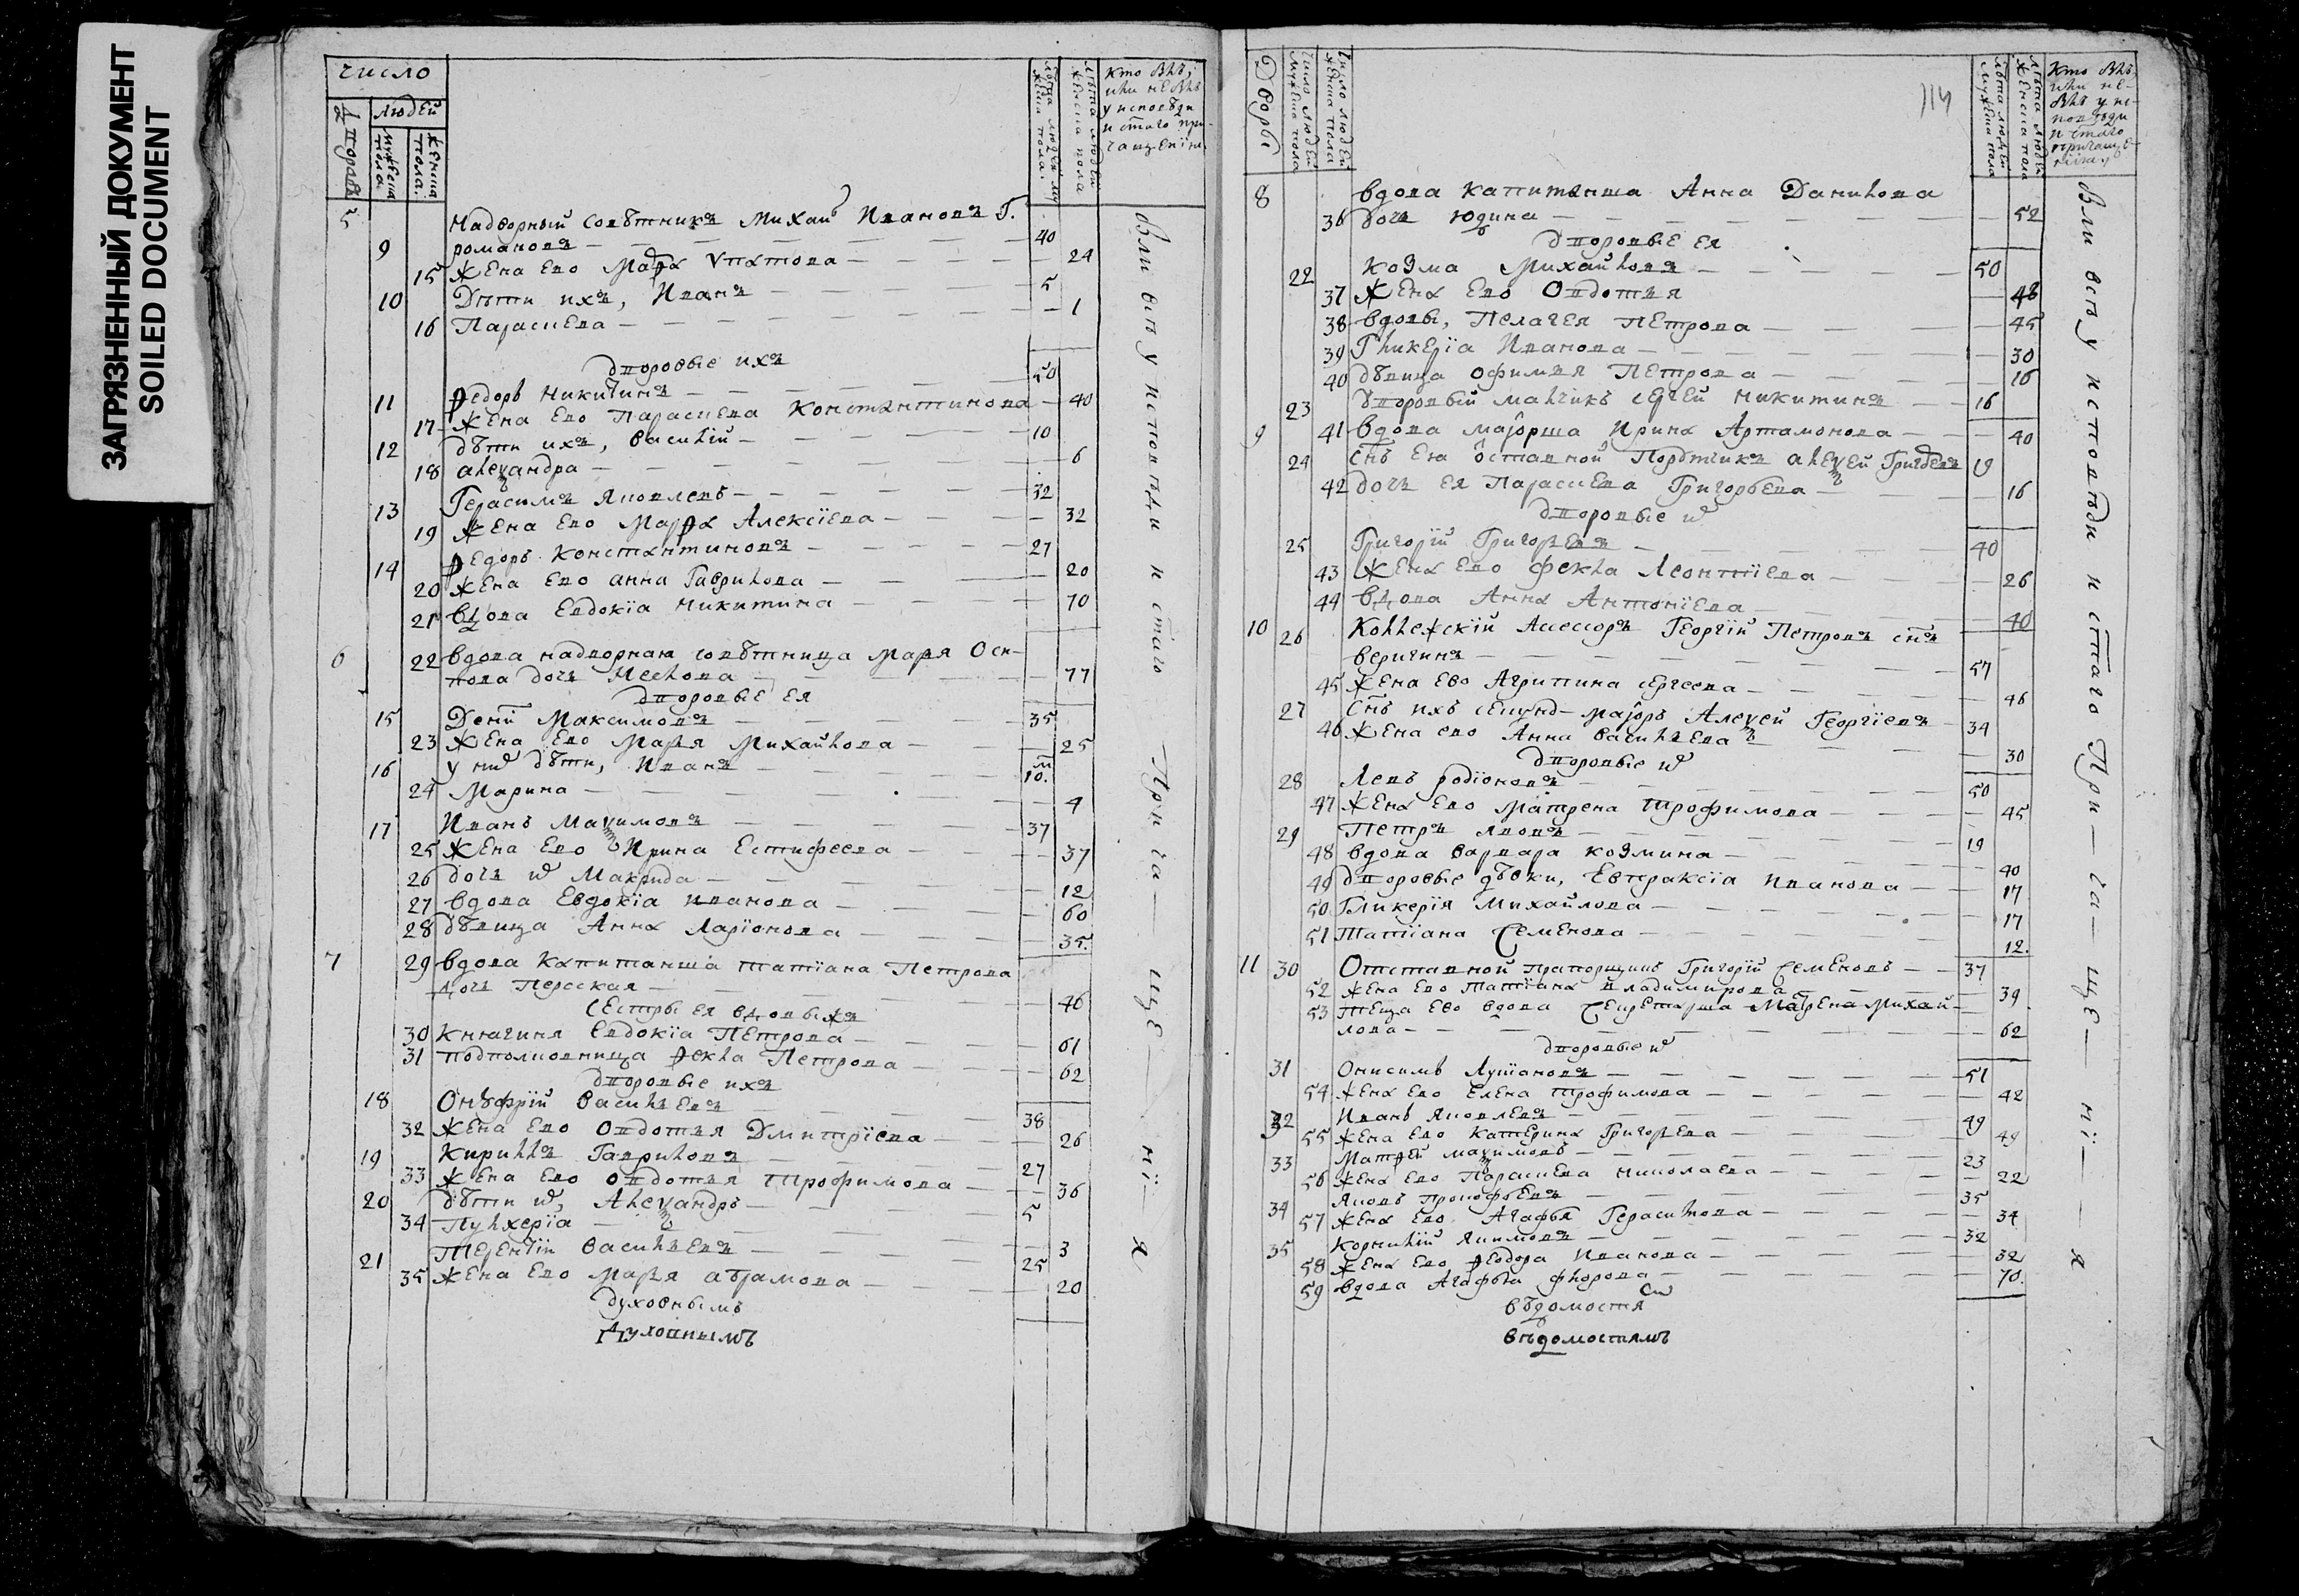 ЗАГРЯЗНЕННЫЙ ДОКУМЕНТ
SOILED DOCUMENT
число
людей
дворовъ
мужеска пола
женска пола.
лѣта людей мужеска пола.
лѣта людей женска пола
кто былъ,
или не былъ
у исповѣди
и стаго при-
чащенiя
5
Надворный совѣтникъ Михаи Ивановъ Г.
9 романовъ — 40
15 жена ево Марѳа — 24
10 Дѣти ихъ, Иванъ — 5
16 Параскева — 1
дворовые ихъ
11 Ѳедоръ Никитинъ — 50
17 жена ево Параскева Константинова — 40
12 дѣти ихъ, василiй — 10
18 алеѯандра — 6
13 Герасимъ Яковлевъ — 32
19 жена ево Марѳа Алексiева — 32
14 Ѳедоръ Константиновъ — 27
20 жена ево анна Гаврилова — 20
21 вдова Евдокiа никитина — 70
6 22 вдова надворная совѣтница Марья Оси-
пова дочь — 77
дворовые ея
15 Дени Максимовъ — 35
23 жена ево Марья Михайлова — 25
16 у них дѣти, Иванъ — 10.
24 Марина — 4
17 Иванъ Маѯимовъ — 37
25 жена ево Ирина Естифеева — 37
26 дочь их Макрида — 12
27 вдова Евдокiа иванова — 60
28 дѣвица Анна Ларiонова — 35.
7 29 вдова капитанша татiана Петрова
дочь — 46
сестры ея вдовыжъ
30 княгиня Евдокiа Петрова — 61
31 подполковница Ѳекла Петрова — 62
дворовые ихъ
18 Онѣфрiй васильевъ — 38
32 жена ево овдотья Дмитрiева — 26
19 кириллъ Гавриловъ — 27
33 жена ево овдотья трофимова — 36
20 дѣти их, Алеѯандръ — 5
34 Пулхерiа — 3
21 терентiй васильевъ — 25
35 жена ево марья абрамова — 20
духовнымъ
Духовнымъ
Были вси у исповѣди и стаго При — ча — ще — нi — я
114
Дворы
число людей мужеска пола
число людей женска пола
лѣта людей мужеска пола
лѣта людей женска пола
кто былъ
или не-
былъ у ис-
повѣди
и стаго
причаще-
нiя
8 вдова капитанша Анна Данилова
36 дочь юдина — 52
дворовые ея
22 козма Михайловъ — 50
37 жена ево Овдотья — 48
38 вдовы, Пелагея Петрова — 45
39 Гликерiа Иванова — 30
40 дѣвица офимья Петрова — 16
23 дворовый малчикъ сергей никитинъ — 16
9 41 вдова маiорша Ирина Артамонова — 40
24 снъ ея отставной Порутчикъ алеѯей Григорьевъ 19
42 дочь ея Параскева Григорьева — 16
дворовые их
25 Григорiй Григорьевъ — 40
43 жена ево фекла Леонтiева — 26
44 вдова Анна Антонiева — 40
10 26 Коллежскiй Асессоръ Георгiй Петровъ снъ
веригинъ — 57
45 жена ево Агрипина сергеева — 46
27 снъ ихъ секунд-маiоръ Алеѯей Георгiевъ — 34
46 жена ево Анна васильева — 30
дворовые их
28 Левъ родiоновъ — 50
47 жена ево матрена трофимова — 45
29 Петръ — 19
48 вдова варвара козмина — 40
49 дворовые дѣвки, Евпраксiа иванова — 17
50 Гликерiя Михайлова — 17
51 татiана семенова — 12.
11 30 Отставной прапорщикъ Григорiй семеновъ — 37
52 жена ево татiана владимирова — 39
53 теща ево вдова секретарша матрена михай-
лова — 62
дворовые их
31 Онисимъ — 51
54 жена ево елена трофимова — 42
32 иванъ яковлевъ — 49
55 жена ево катерина григорьева — 49
33 матѳей маѯимовъ — 23
56 жена ево Параскева николаева — 22
34 яковъ прокофьевъ — 35
57 жена ево Агафья Герасимова — 34
35 корнилiй якимовъ — 32
58 жена ево Ѳеодора иванова — 32
59 вдова агафья фролова — 70.
вѣдомостям
вѣдомостямъ
Были всѣ у исповѣди и стаго При — ча — ще — нi — я